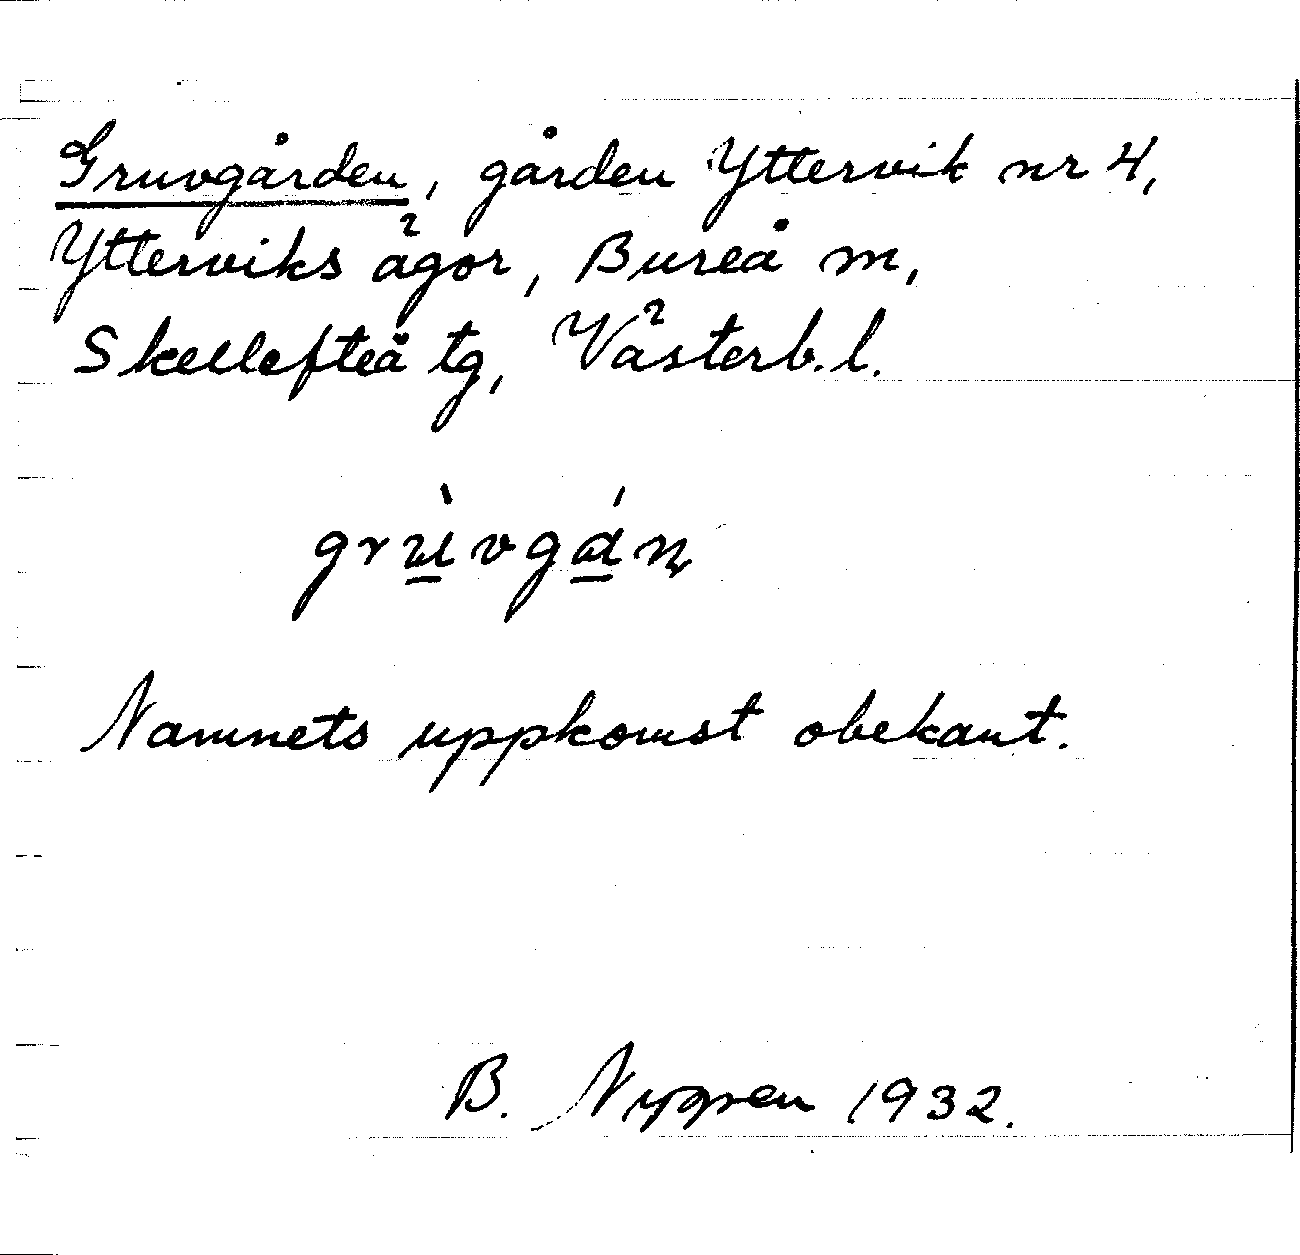 Gruvgården, gården Yttervik nr 4,
Ytterviks ägor, Bureå m,
Skellefteå tg, Västerb. l.
grù̠vgá̠ɳ
Namnets uppkomst obekant.
B. Nygren 1932.